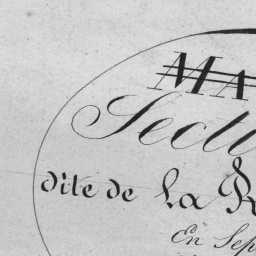 MA
Secti
dite de La R
En Sep